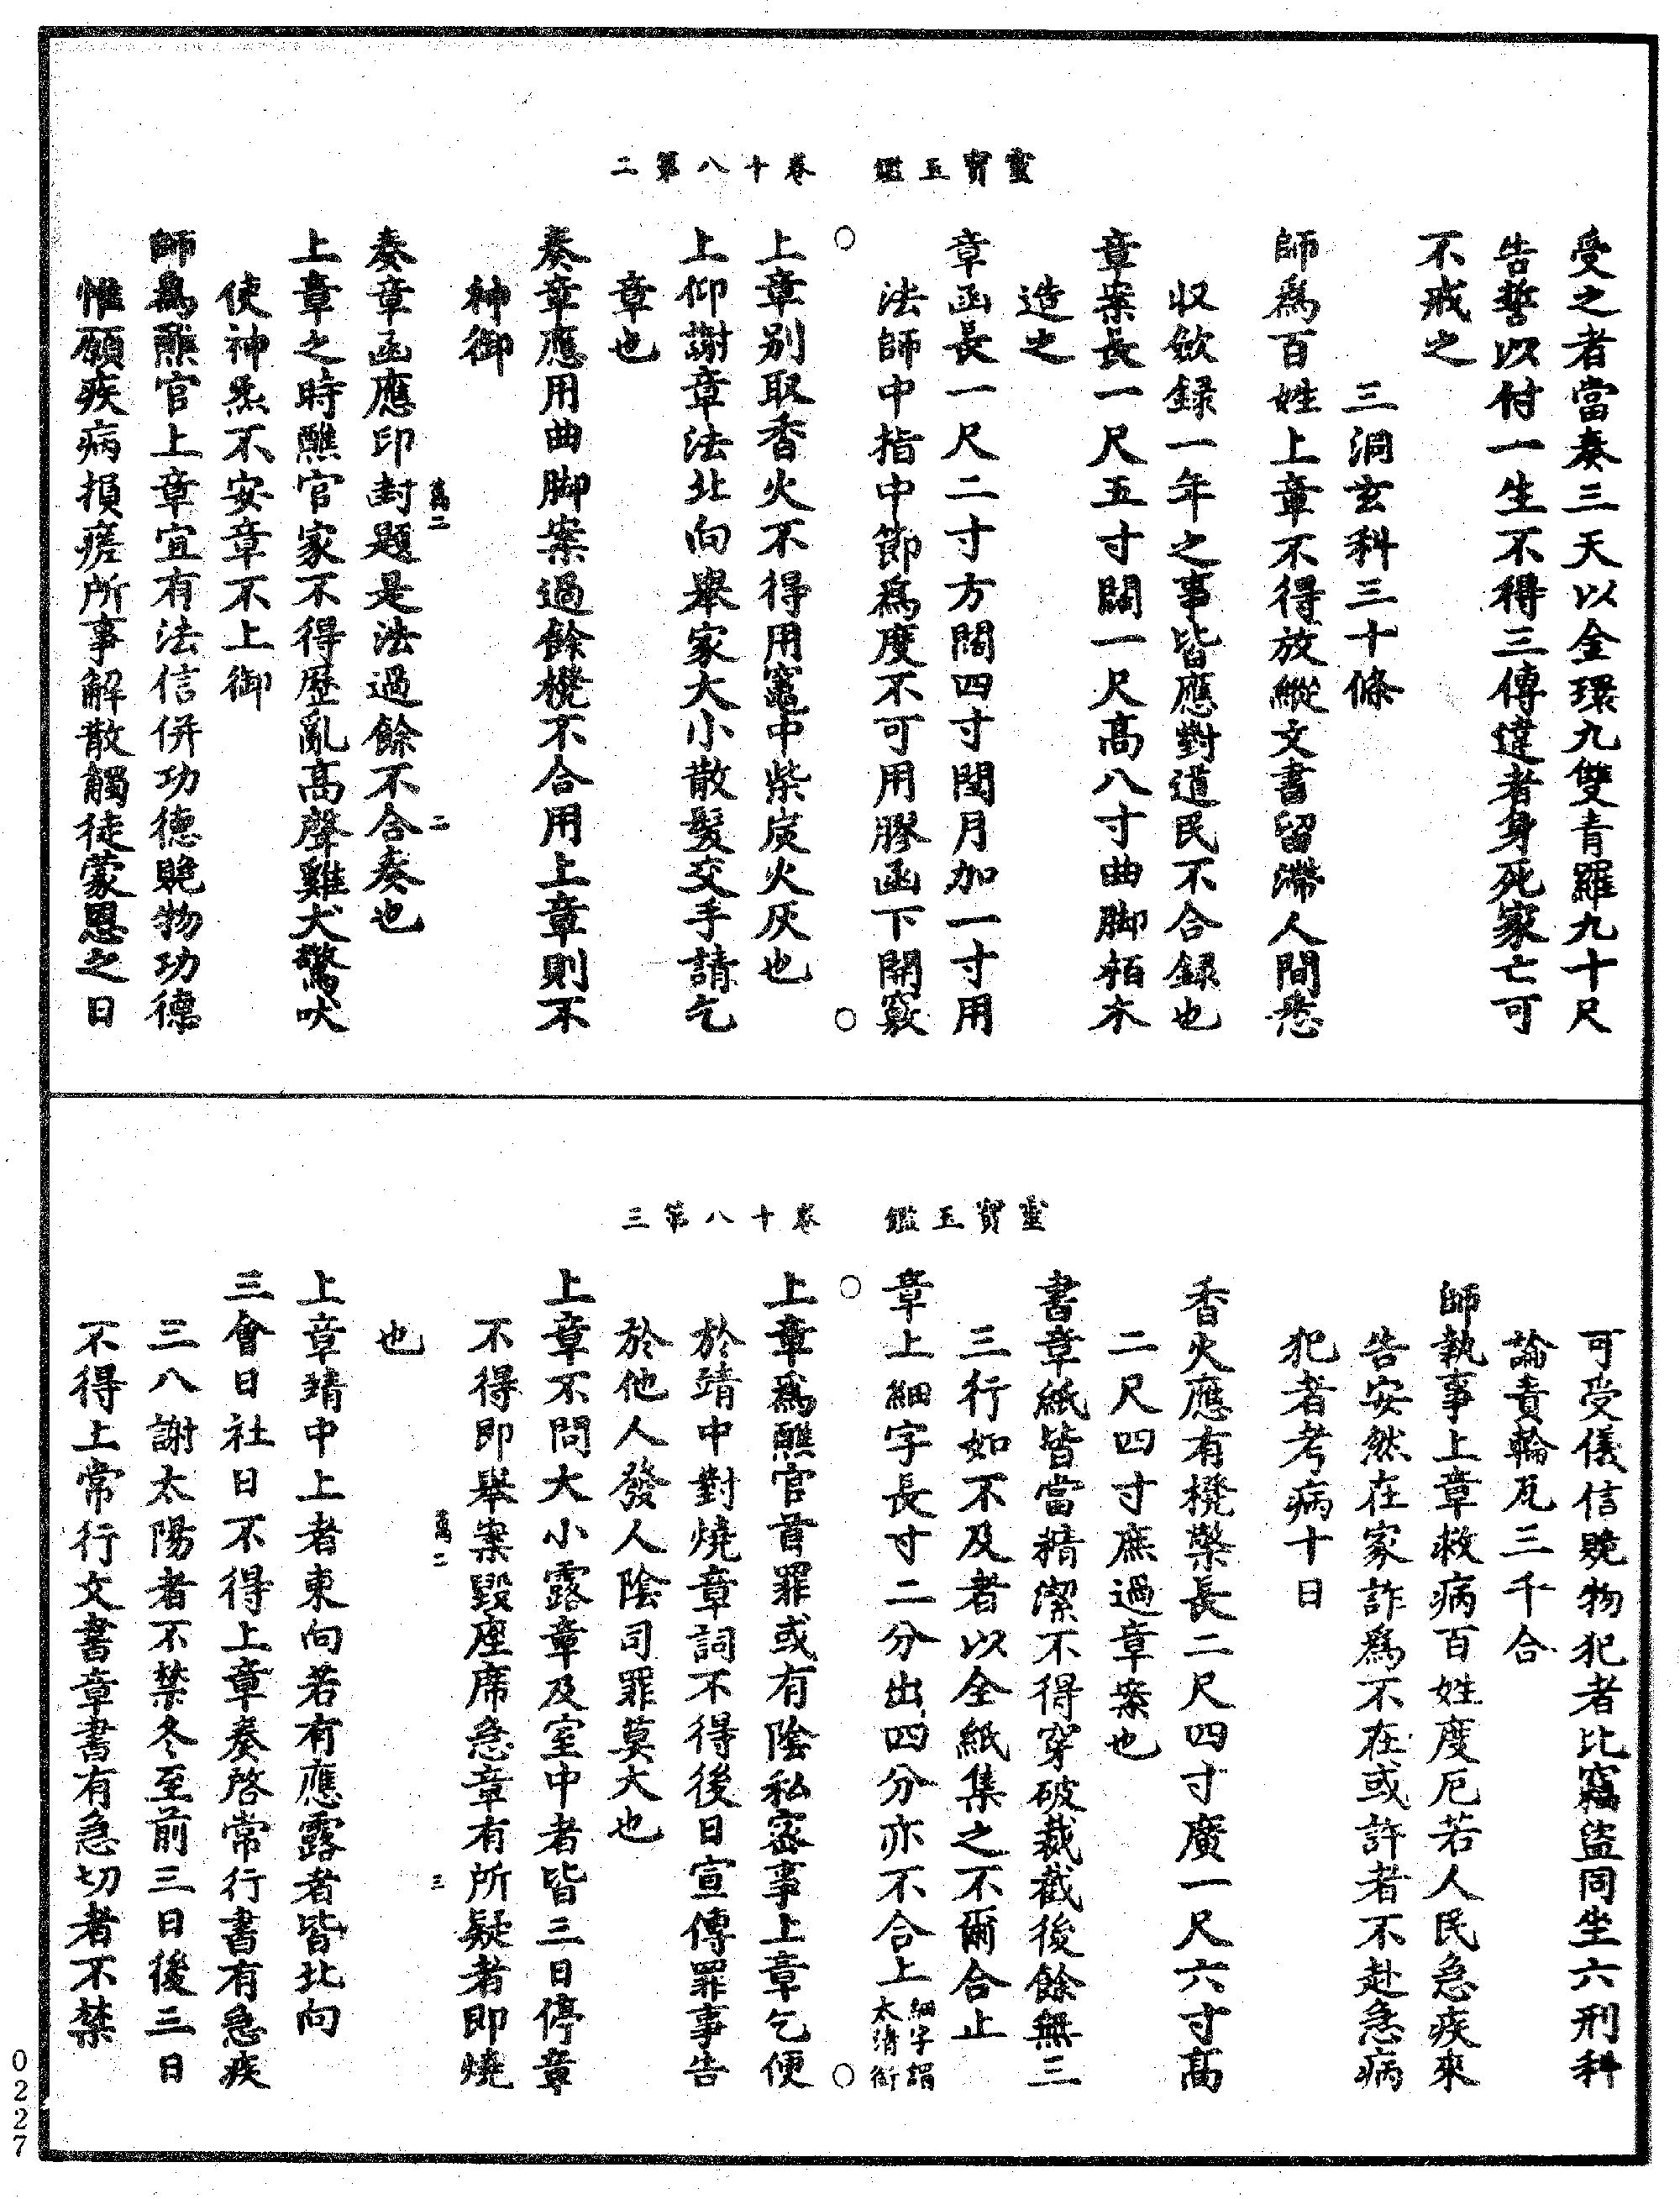 靈寶玉鑑　卷十八第二
受之者當奏三天以金環九雙青羅九十尺
告誓以付一生不得三傳違者身死家亡可
不戒之
三洞玄科三十條
師爲百姓上章不得放縱文書留滯人間愁
収斂録一年之事皆應對道民不合録也
章案長一尺五寸闊一尺高八寸曲脚栢木
造之
章函長一尺二寸方闊四寸閏月加一寸用
法師中指中節爲度不可用膠函下開竅
上章别取香火不得用竈中柴炭火灰也
上仰謝章法北向舉家大小散髮交手請乞
章也
奏章應用曲脚案過餘櫈不合用上章則不
神御
萬二　二
奏章函應印封題是法過餘不合奏也
上章之時醮官家不得歷亂高聲雞犬驚吠
使神炁不安章不上御
師爲醮官上章宜有法信併功德賧物功德
惟願疾病損瘥所事解散觸徒蒙恩之日
靈寶玉鑑　卷十八第三
可受儀信賧物犯者比竊盜同坐六刑科
論責輪瓦三千合
師執事上章救病百姓度厄若人民急疾來
告安然在家詐爲不在或許者不赴急病
犯者考病十日
香火應有櫈檠長二尺四寸廣一尺六寸高
二尺四寸庶過章案也
書章紙皆當精潔不得穿破裁截後餘無三
三行如不及者以全紙集之不爾合止
章上細字長寸二分出四分亦不合上細字謂太清銜
上章爲醮官首罪或有陰私密事上章乞便
於靖中對燒章詞不得後日宣傳罪事告
於他人發人陰司罪莫大也
上章不問大小露章及室中者皆三日停章
不得即舉案毀座席急章有所疑者即燒
萬二　三
也
上章靖中上者東向若有應露者皆北向
三會日社日不得上章奏啓常行書有急疾
三八謝太陽者不禁冬至前三日後三日
不得上常行文書章書有急切者不禁
0227